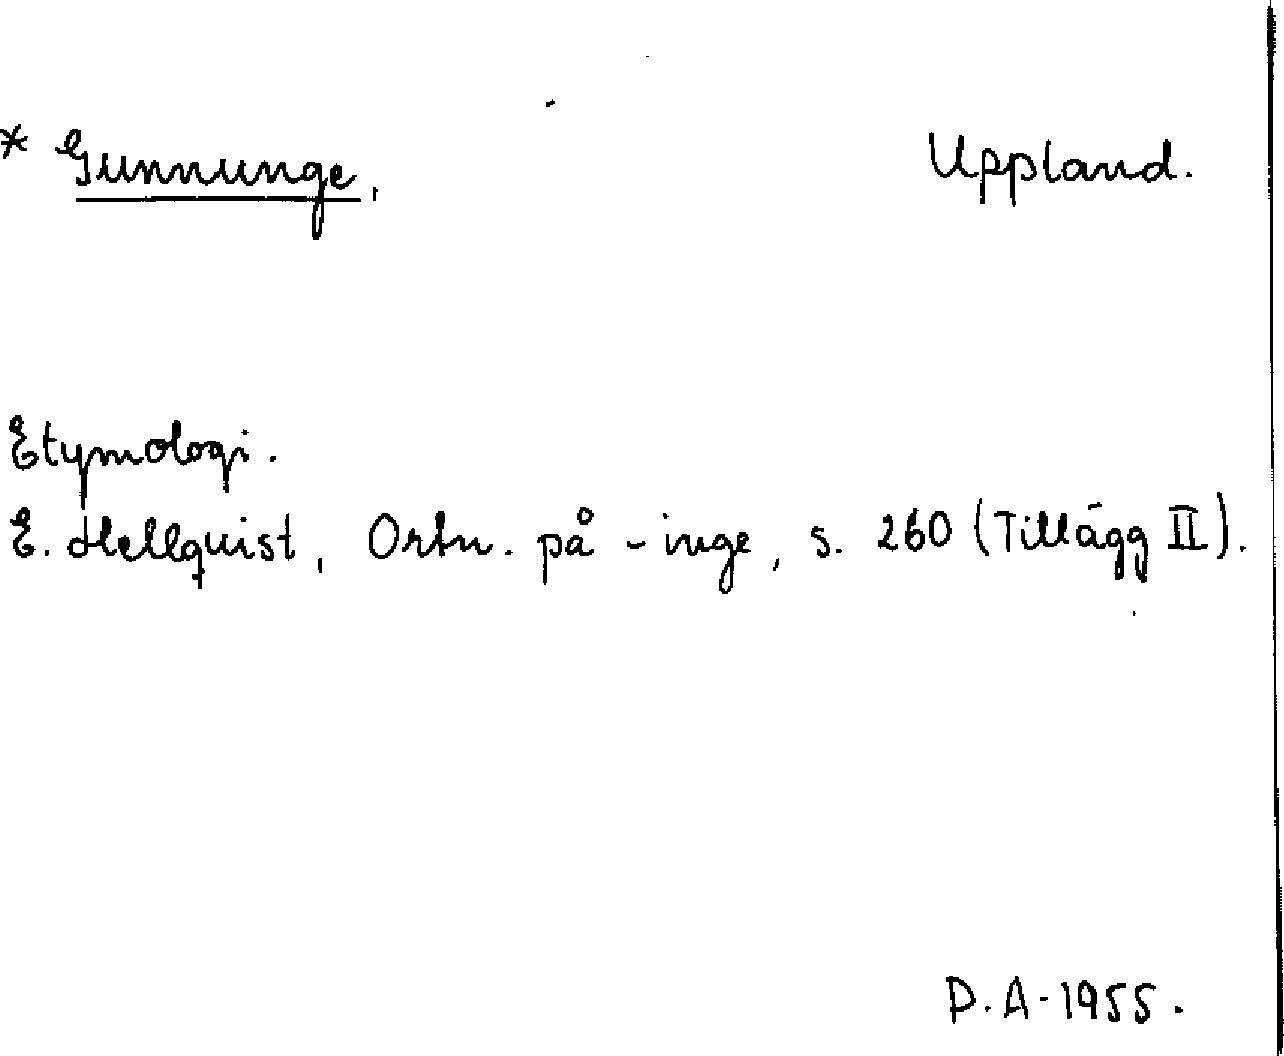 * Gunnunge, Uppland.
Etymologi.
E. Hellquist, Ortn. på -inge, s. 260 (Tillägg II).
D.A. 1955.